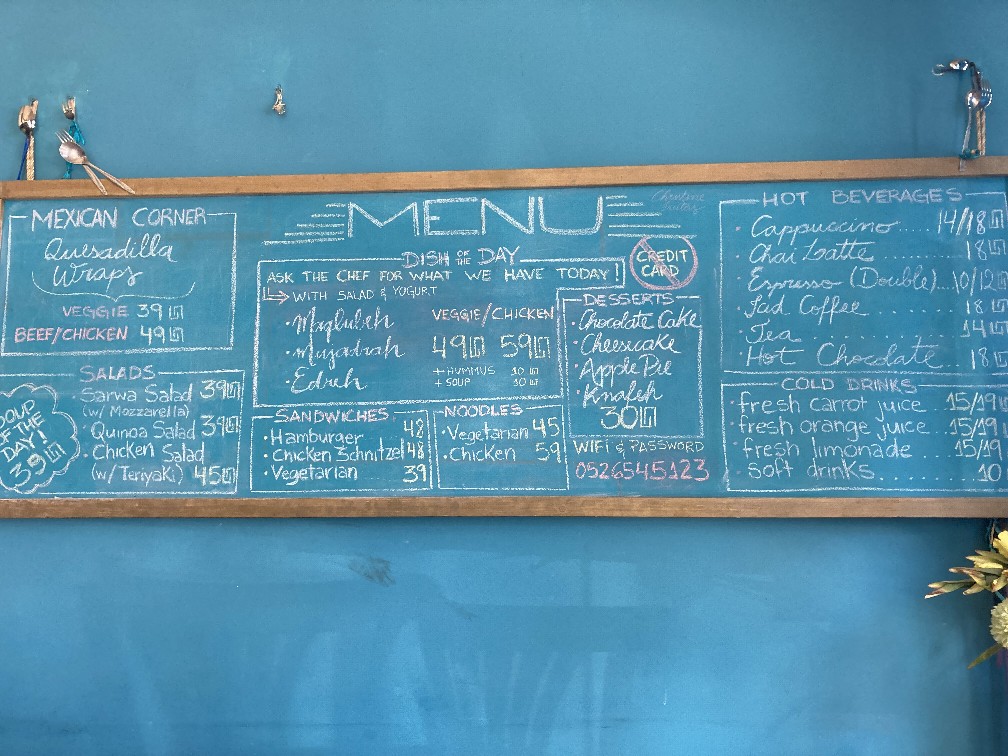 MENU
MEXICAN CORNER
Quesadilla
Wraps
VEGGIE 39₪
BEEF/CHICKEN 49₪
SALADS
Sarwa Salad 39₪
(w/ Mozzarella)
Quinoa Salad 39₪
Chicken Salad
(w/ Teriyaki) 45₪
SOUP
OF THE
DAY!
39₪
DISH OF THE DAY
ASK THE CHEF FOR WHAT WE HAVE TODAY!
WITH SALAD & YOGURT
VEGGIE/CHICKEN
· Maqlubeh
· Mujadrah 49₪ 59₪
· Edreh
+ HUMMUS 10₪
+ SOUP 30₪
SANDWICHES
· Hamburger 48
· Chicken Schnitzel 48
· Vegetarian 39
NOODLES
· Vegetarian 45
· Chicken 59
CREDIT
CARD
DESSERTS
· Chocolate Cake
· Cheesecake
· Apple Pie
· Knafeh
30₪
WIFI & PASSWORD
0526545123
HOT BEVERAGES
· Cappuccino.....14/18₪
· Chai Latte.......18₪
· Espresso (Double)...10/12₪
· Iced Coffee........18₪
· Tea...............14₪
· Hot Chocolate...18₪
COLD DRINKS
· fresh carrot juice ..15/19₪
· fresh orange juice ...15/19
· fresh limonade ....15/19
· soft drinks........10